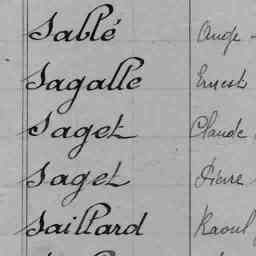 Sablé Ange
Sagalle Ernest
Saget Claude
Saget Pierre
Saillard Raoul